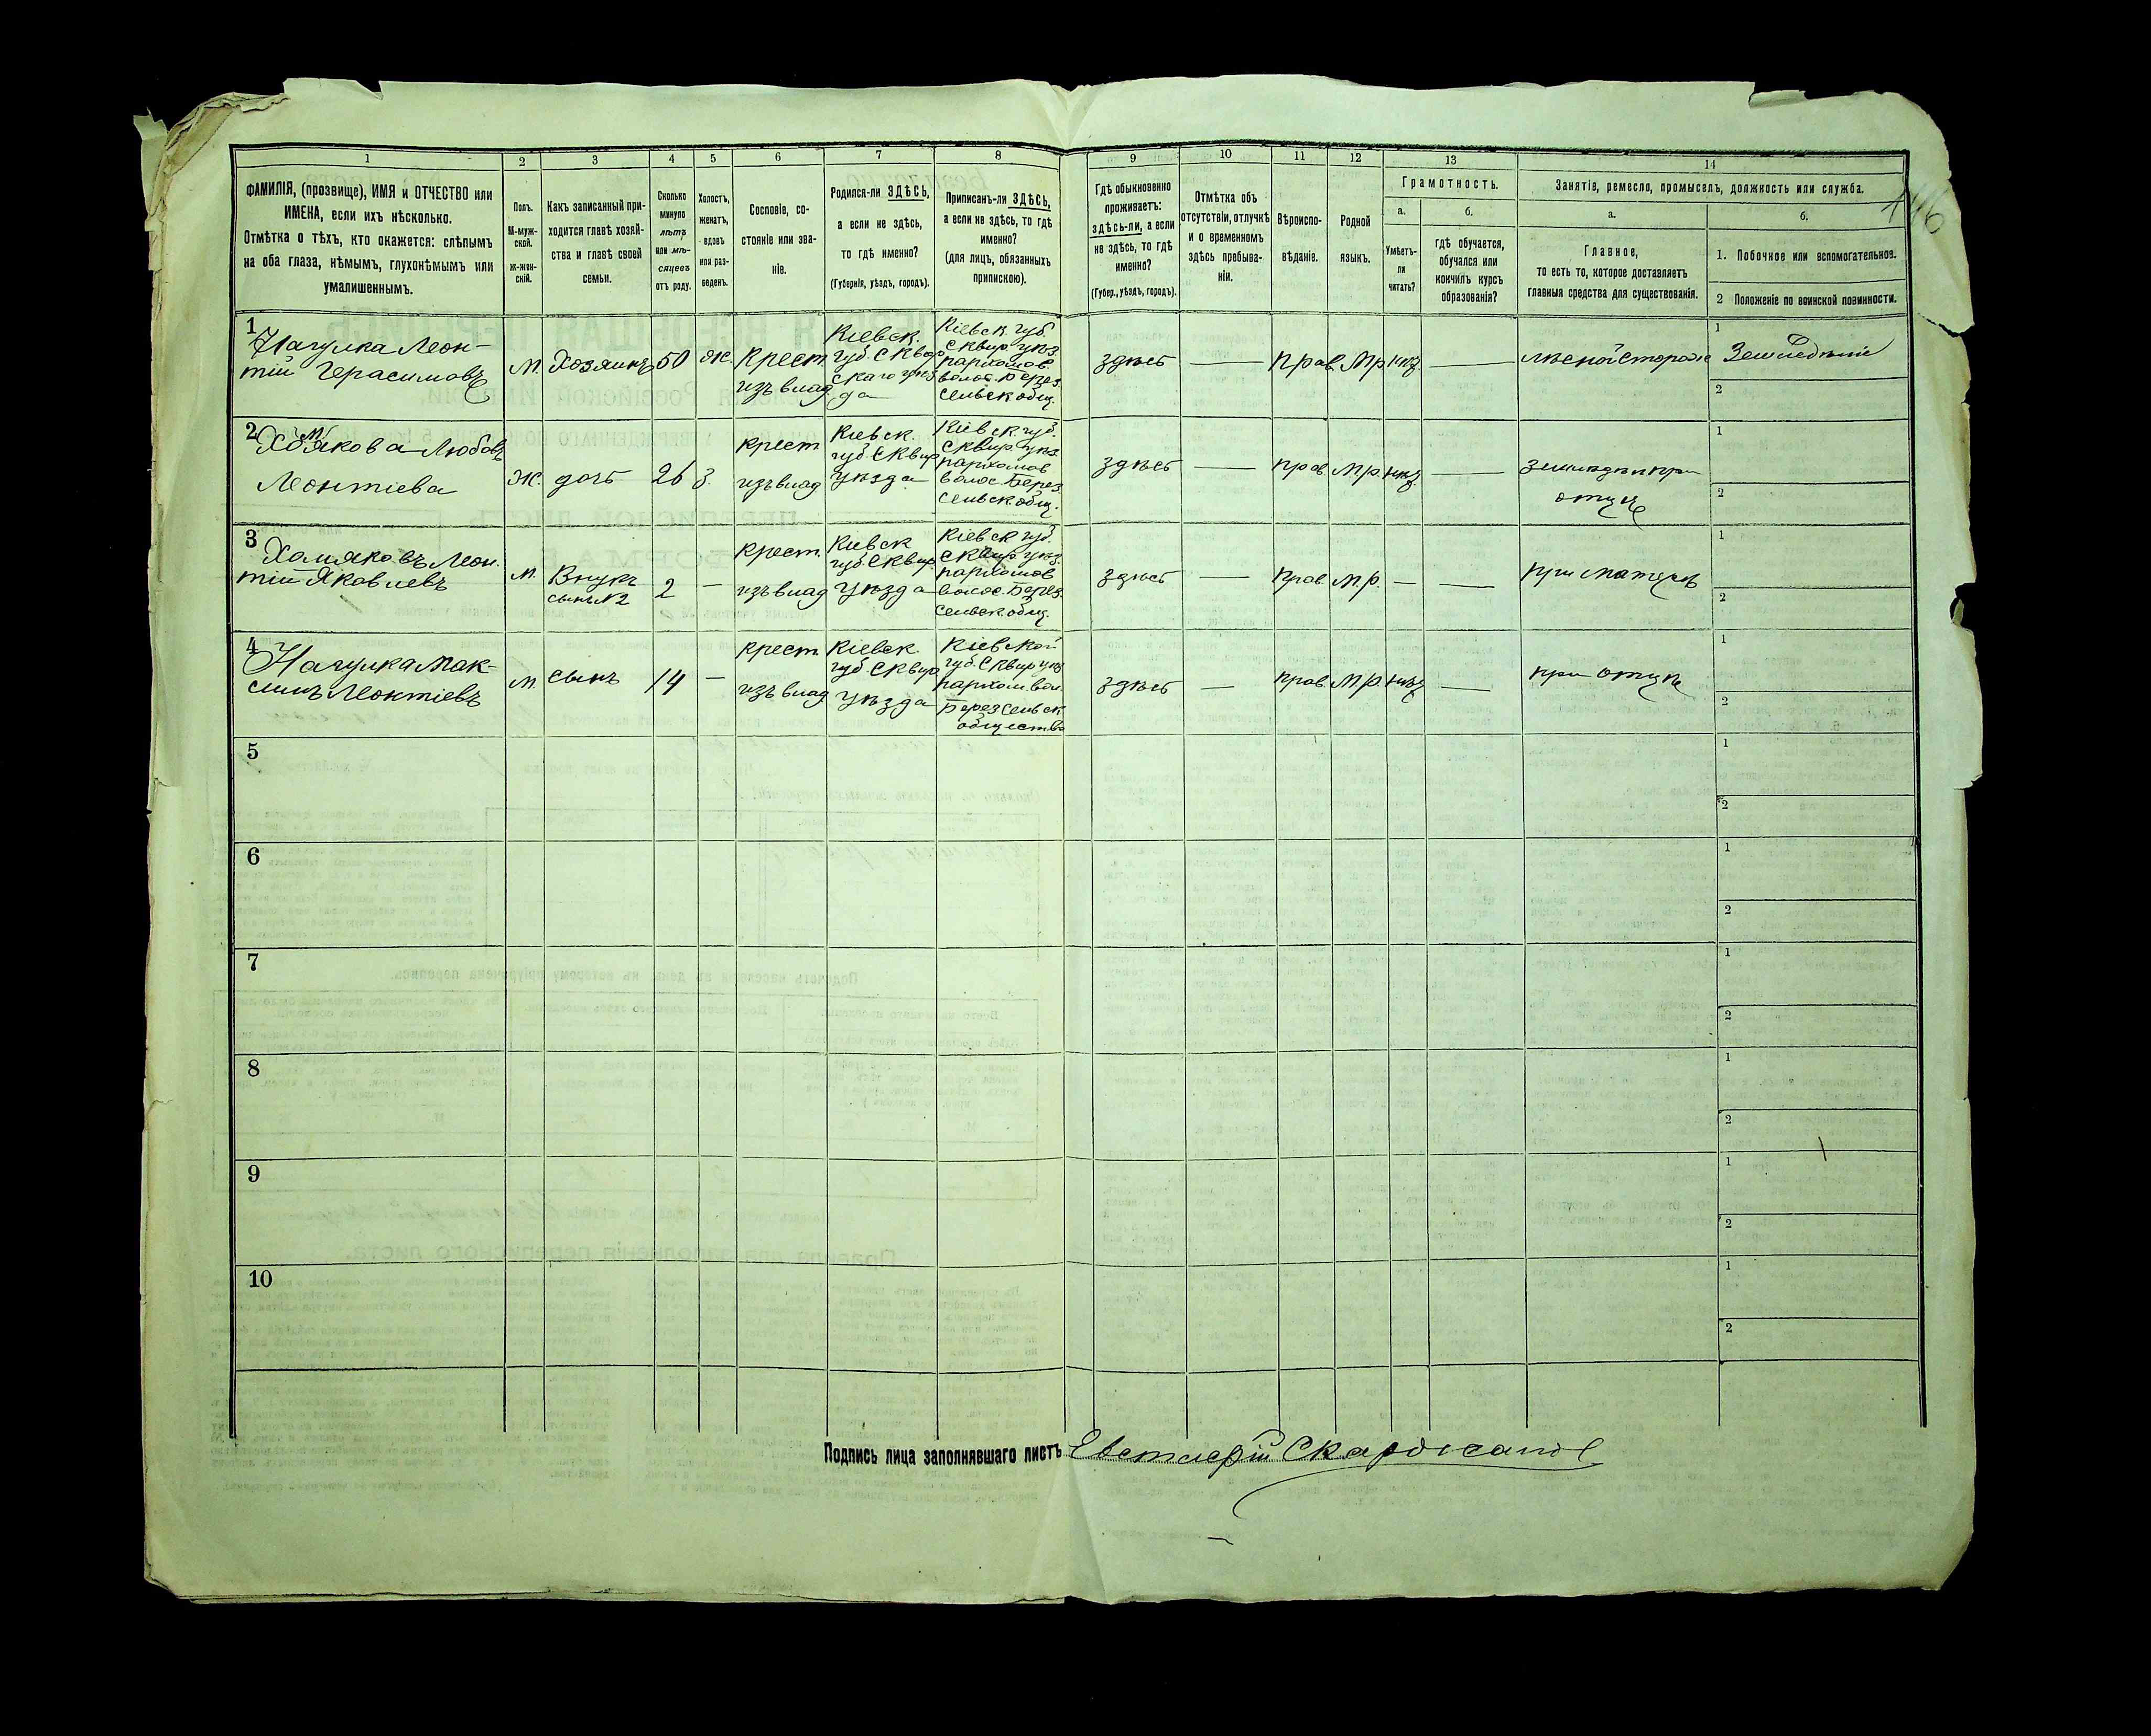 1 2 3 4 5 6 7 8 9 10 11 12 13 14
ФАМИЛІЯ, (прозвище), ИМЯ и ОТЧЕСТВО или
ИМЕНА, если ихъ нѣсколько.
Отмѣтка о тѣхъ, кто окажется: слѣпымъ
на оба глаза, нѣмымъ, глухонѣмымъ или
умалишеннымъ.
Полъ.
М-муж-
ской.
ж-жен-
скій.
Какъ записанный при-
ходится главѣ хозяй-
ства и главѣ своей
семьи.
Сколько
минуло
лѣтъ
или мѣ-
сяцевъ
отъ роду.
Холостъ,
женатъ,
вдовъ
или раз-
веденъ.
Сословіе, со-
стояніе или зва-
ніе.
Родился-ли ЗДѢСЬ,
а если не здѣсь,
то гдѣ именно?
(Губернія, уѣздъ, городъ).
Приписанъ-ли ЗДѢСЬ,
а если не здѣсь, то гдѣ
именно?
(для лицъ, обязанныхъ
припискою).
Гдѣ обыкновенно
проживаетъ:
здѣсь-ли, а если
не здѣсь, то гдѣ
именно?
(Губер., уѣздъ, городъ).
Отмѣтка объ
отсутствіи, отлучкѣ
и о временномъ
здѣсь пребыва-
ніи.
Вѣроиспо-
вѣданіе.
Родной
языкъ.
Грамотность.
а.
Умѣетъ-
ли
читать?
б.
гдѣ обучается,
обучался или
кончилъ курсъ
образованія?
Занятіе, ремесло, промыселъ, должность или служба.
а.
Главное,
то есть то, которое доставляетъ
главныя средства для существованія.
б.
1. Побочное или вспомогательное.
2 Положеніе по воинской повинности.
146
1
Нагулка Леон-
тій Герасимовъ
М.
Хозяинъ
50
ж.
Крест.
изъ влад.
Кіевск.
губ. Сквир
скаго уѣз
да
Кіевск. губ.
Сквир. уѣз.
пархомов.
волос. Берез.
сельск. общ.
здѣсь
—
прав.
Мр.
нѣт
—
лѣсной сторож
1
Земледѣліе
2
2
Хомякова Любовъ
Леонтіева
Ж.
дочь
26
З.
крест
изъ влад
Кіевск.
губ. Сквир
уѣзда
Кіевск. губ.
Сквир. уѣз.
пархомов
волос. Берез.
сельск. общ.
здѣсь
—
прав.
Мр.
нѣт
—
земледѣл при
отцѣ
1
2
3
Хомяковъ Леон.
тій Яковлевъ
М.
Внукъ
сынъ №2
2
—
крест.
изъ влад
Кіевск
губ. Сквир
уѣзда
Кіевск губ.
Сквир. уѣз.
пархомов
волос. Берез.
сельск. общ.
здѣсь
—
прав.
Мр.
—
—
при матери
1
2
4
Нагулка Мак-
симъ Леонтіевъ
М.
сынъ
14
—
крест
изъ влад
Кіевск.
губ. Сквир
уѣзда
Кіевской
губ. Сквир уѣз
пархом. вол.
Берез сельск
общества
здѣсь
—
прав.
Мр.
нѣт
—
при отцѣ
1
2
5
1
2
6
1
2
7
1
2
8
1
2
9
1
2
10
1
2
Подпись лица заполнявшаго листъ